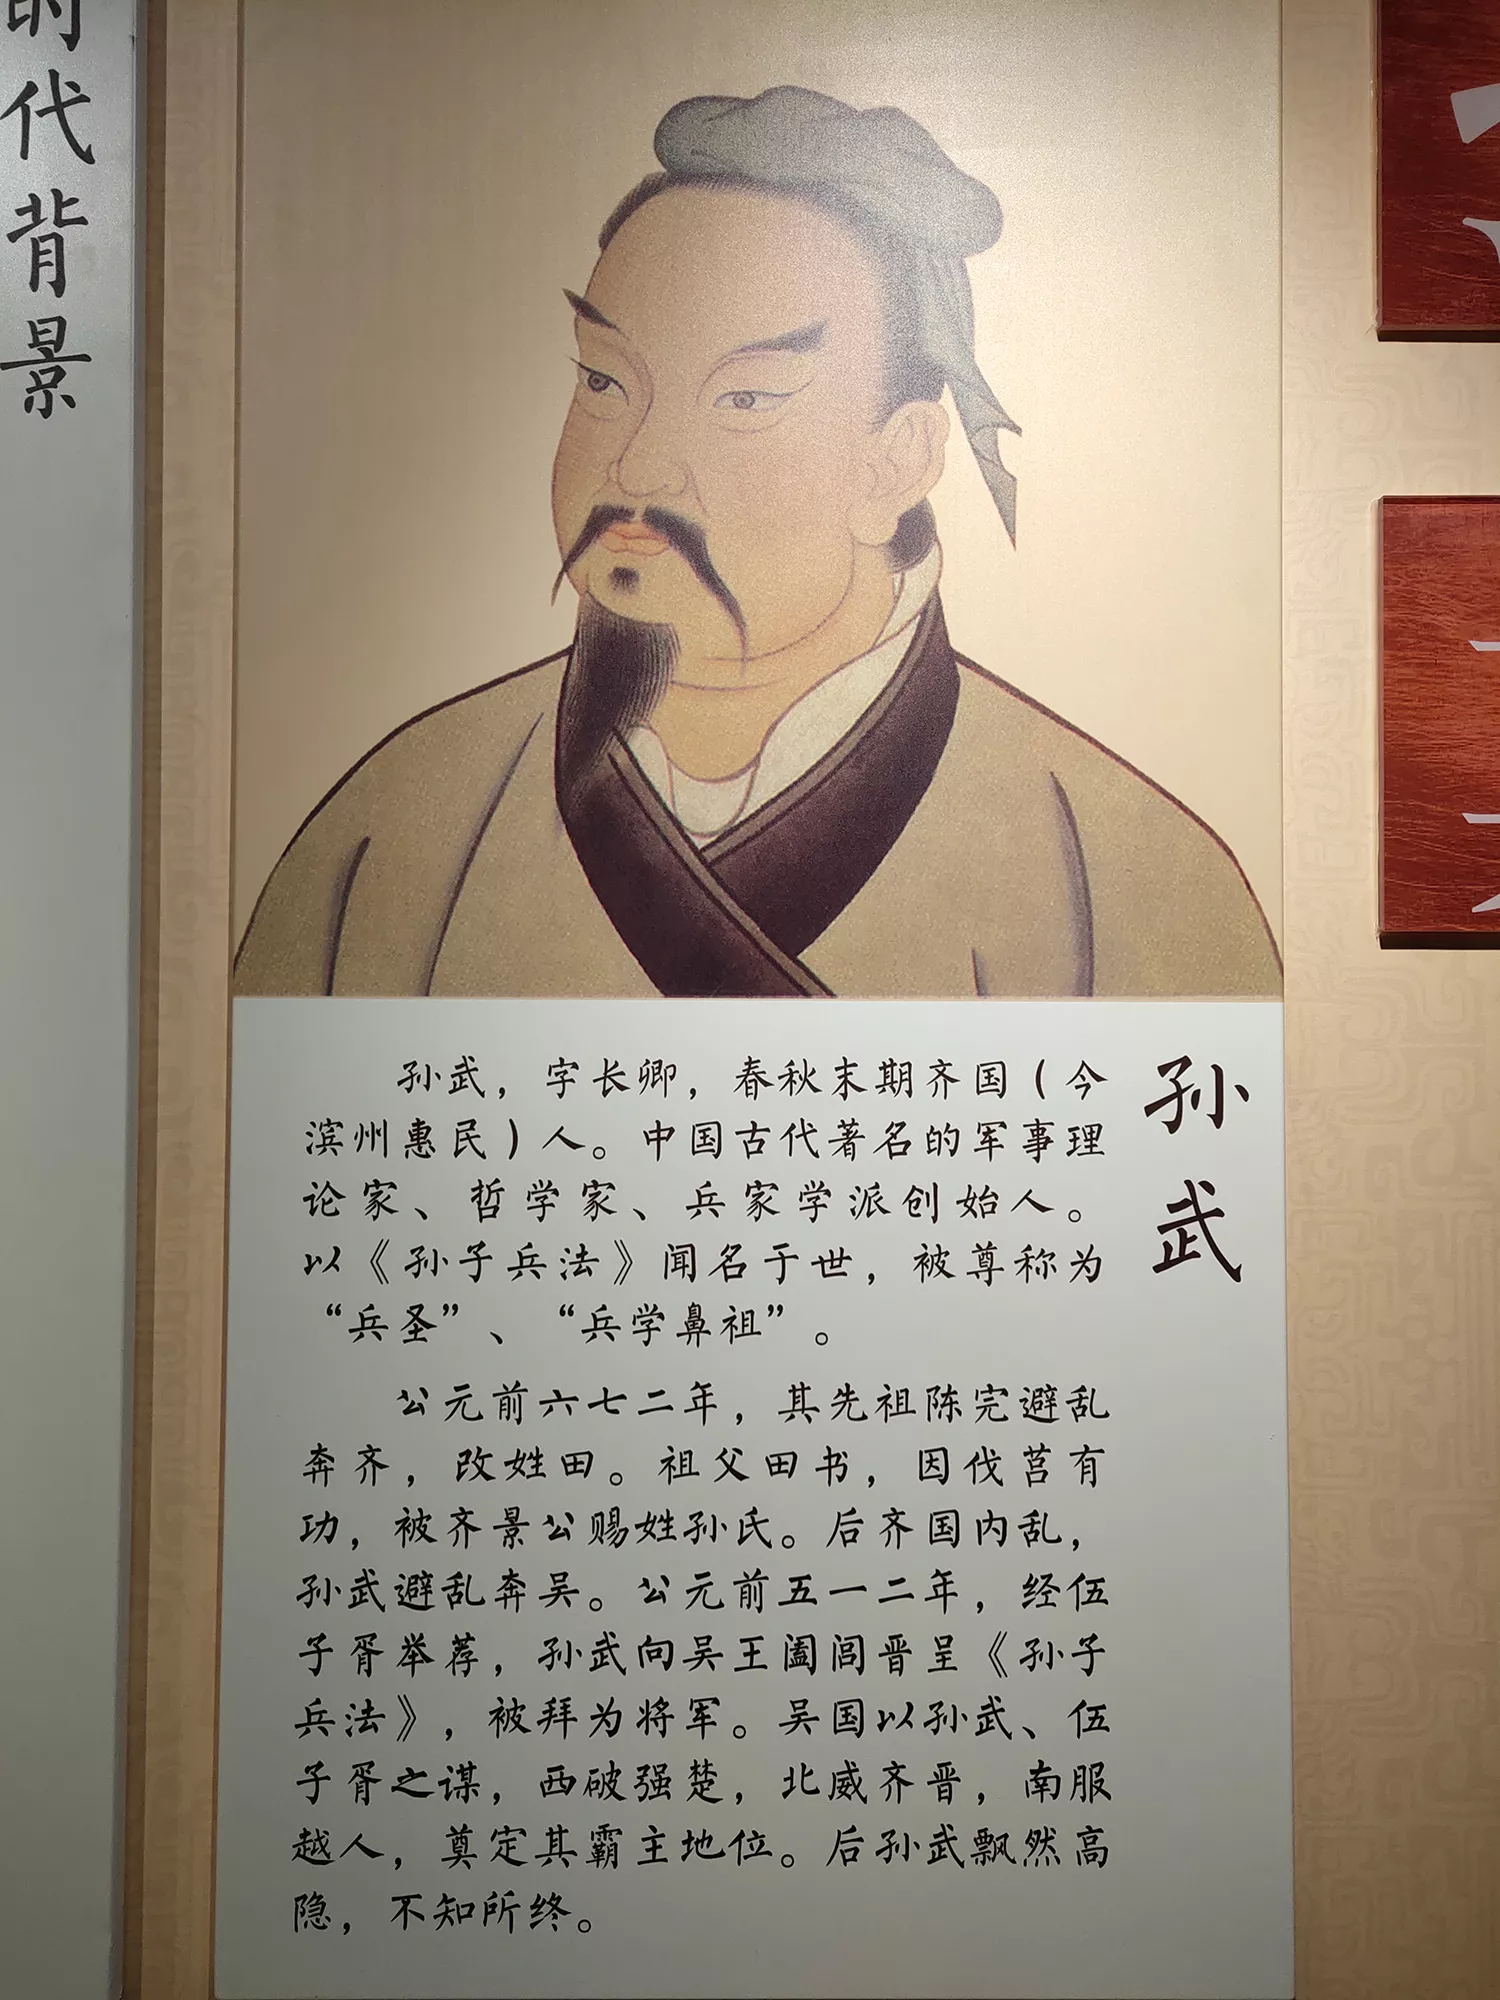 时代背景
孙武
孙武，字长卿，春秋末期齐国(今
滨州惠民)人。中国古代著名的军事理
论家、哲学家、兵家学派创始人。
以《孙子兵法》闻名于世，被尊称为
“兵圣”、“兵学鼻祖”。
公元前六七二年，其先祖陈完避乱
奔齐，改姓田。祖父田书，因伐莒有
功，被齐景公赐姓孙氏。后齐国内乱，
孙武避乱奔吴。公元前五一二年，经伍
子胥举荐，孙武向吴王阖闾晋呈《孙子
兵法》，被拜为将军。吴国以孙武、伍
子胥之谋，西破强楚，北威齐晋，南服
越人，奠定其霸主地位。后孙武飘然高
隐，不知所终。